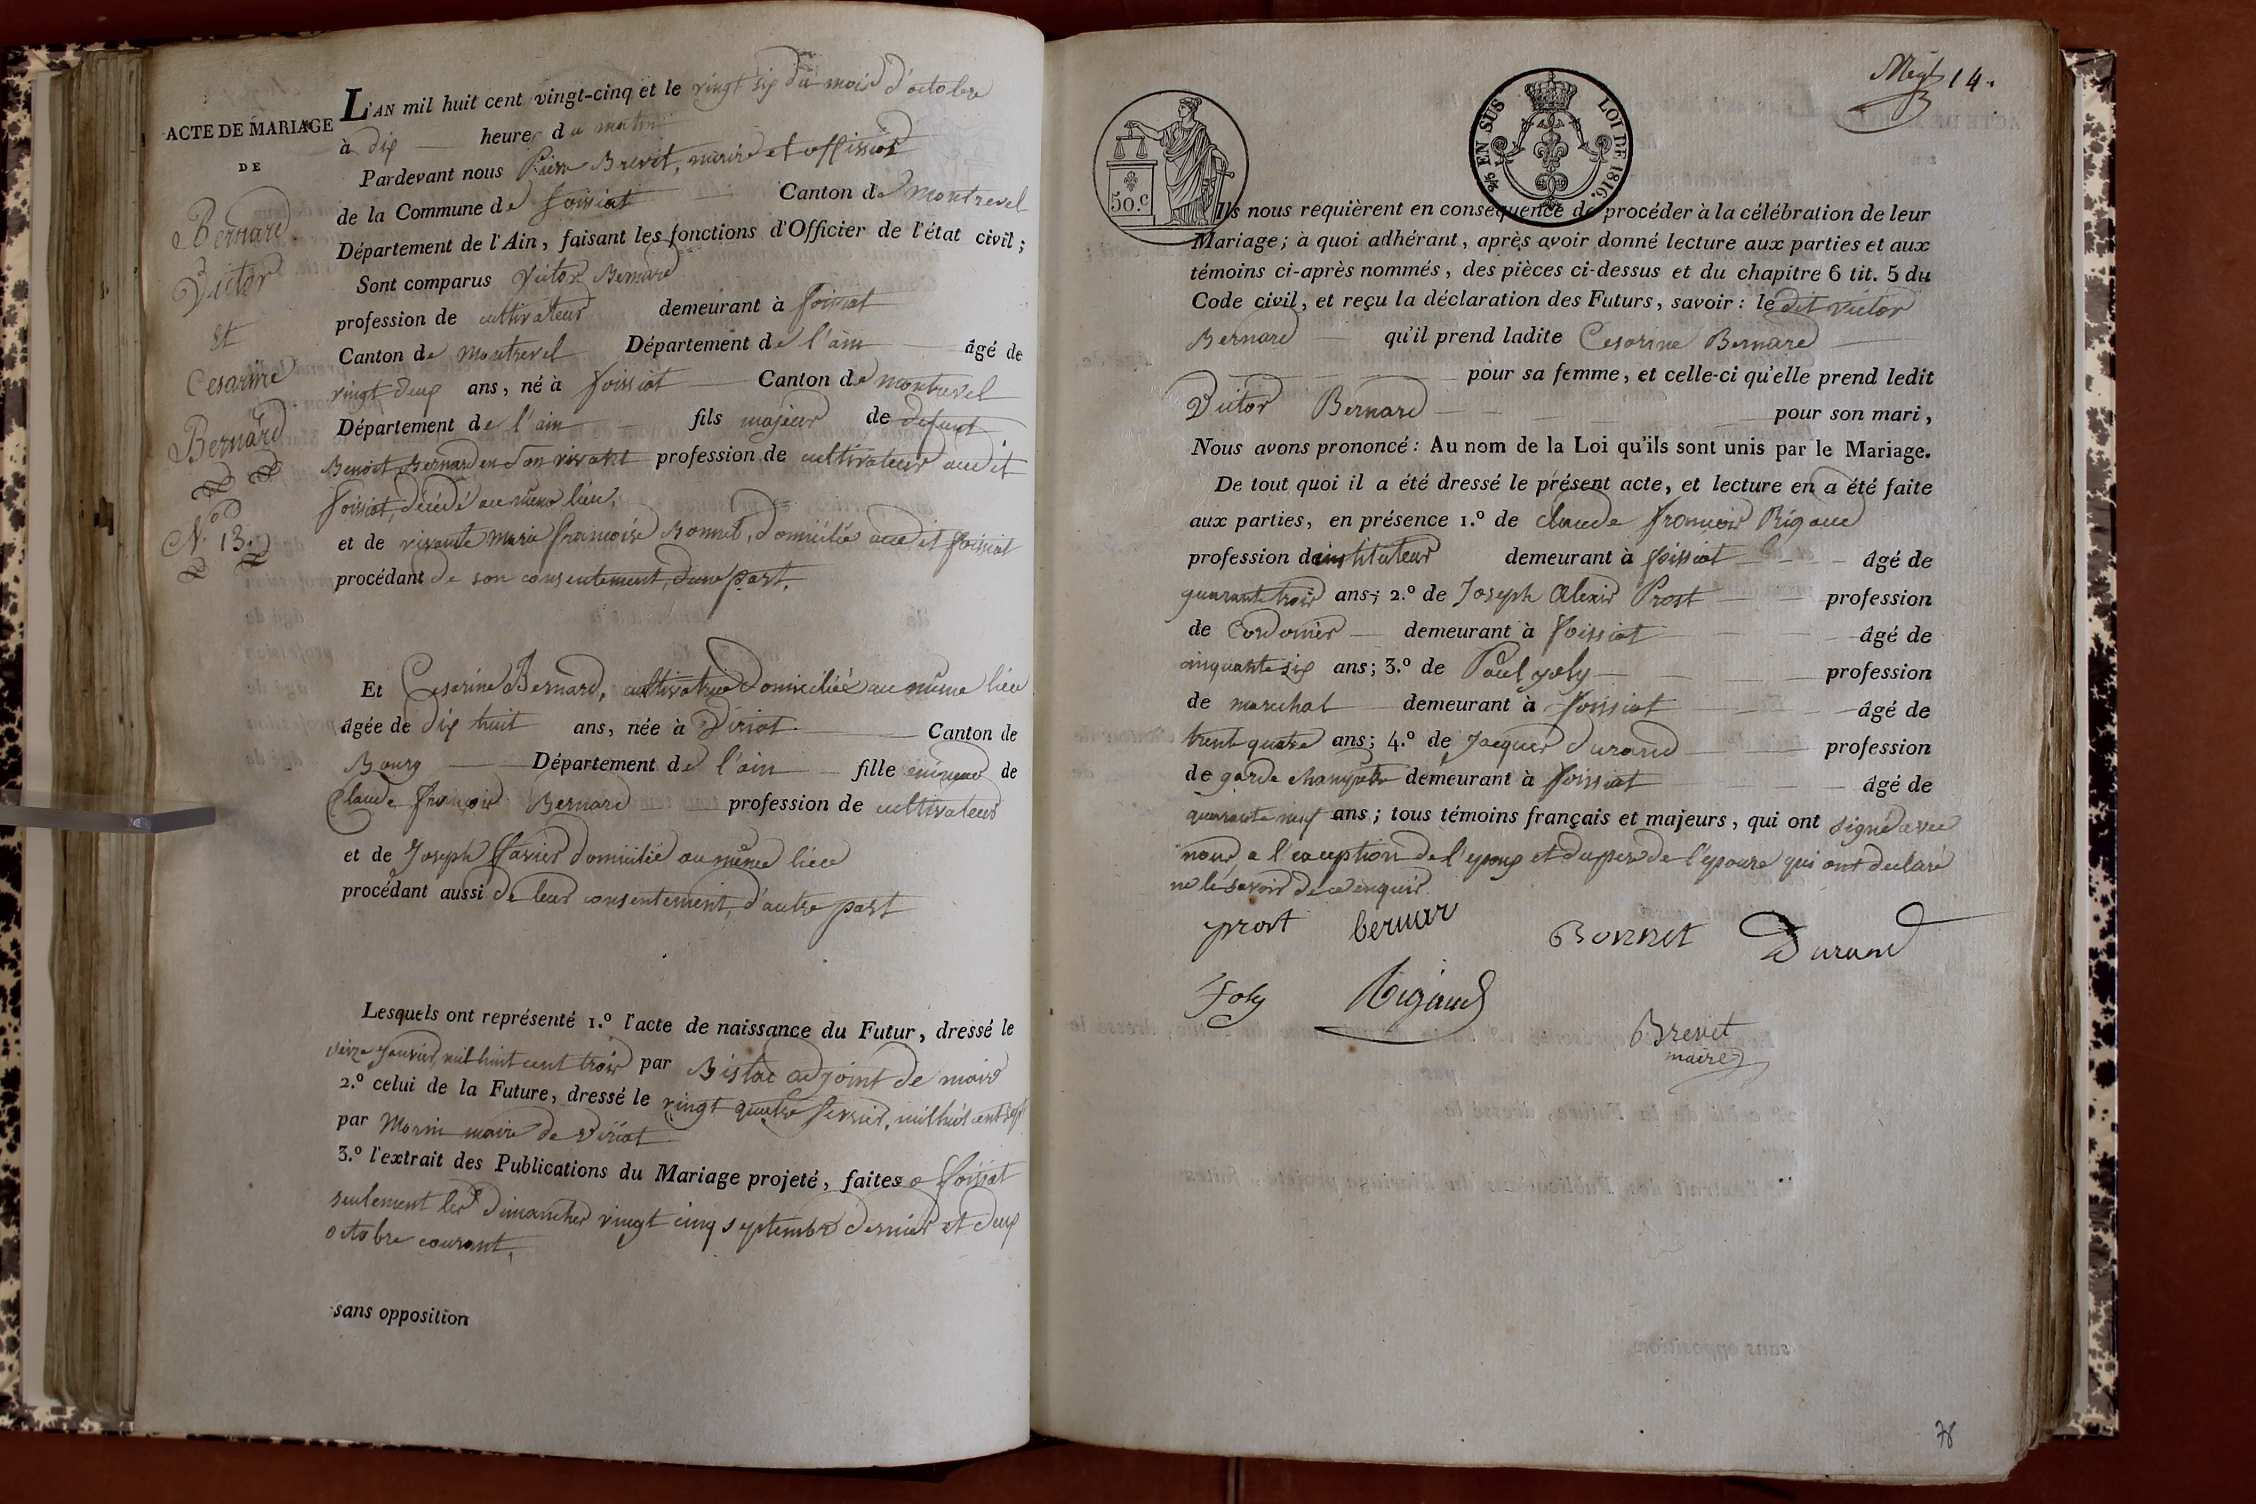 ACTE DE MARIAGE
DE
Bernard
Victor
et
Cesarine
Bernard
N.º 13.
L'AN mil huit cent vingt-cinq et le vingt six du mois d'octobre
à dix heures du matin
Pardevant nous Pierre Brevet, maire et officier
de la Commune de foissiat Canton de montrevel
Département de l'Ain, faisant les fonctions d'Officier de l'état civil;
Sont comparus Victor Bernard
profession de cultivateur demeurant à foissiat
Canton de Montrevel Département de l'ain âgé de
vingt deux ans, né à foissiat Canton de montrevel
Département de l'ain fils majeur de defunt
Benoit Bernard en son vivant profession de cultivateur audit
foissiat, décédé au même lieu,
et de vivante marie françoise Bonnet, domiciliée audit foissiat
procédant de son consentement, d'une part,
Et Cesarine Bernard, cultivatrice domiciliée au même lieu
âgée de dix huit ans, née à Viriat Canton de
Bourg Département de l'ain fille mineure de
Claude françois Bernard profession de cultivateur
et de Joseph favier domiciliée au même lieu
procédant aussi de leur consentement, d'autre part
Lesquels ont représenté 1.º l'acte de naissance du Futur, dressé le
janvier mil huit cent trois par Bistac adjoint de maire
2.º celui de la Future, dressé le vingt quatre fevrier, mil huit cent sept
par Morin maire de Viriat
3.º l'extrait des Publications du Mariage projeté, faites a foissiat
seulement les dimanches vingt cinq septembre dernier et deux
octobre courant,
sans opposition
14.
50.c
EN SUS LOI DE 1816.
Ils nous requièrent en conséquence de procéder à la célébration de leur
Mariage; à quoi adhérant, après avoir donné lecture aux parties et aux
témoins ci-après nommés, des pièces ci-dessus et du chapitre 6 tit. 5 du
Code civil, et reçu la déclaration des Futurs, savoir: ledit victor
Bernard qu'il prend ladite Cesarine Bernard
pour sa femme, et celle-ci qu'elle prend ledit
Victor Bernard pour son mari,
Nous avons prononcé: Au nom de la Loi qu'ils sont unis par le Mariage.
De tout quoi il a été dressé le présent acte, et lecture en a été faite
aux parties, en présence 1.º de claude françois Rigaud
profession d'instituteur demeurant à foissiat âgé de
quarante trois ans; 2.º de Joseph Alexis Prost profession
de Cordonier demeurant à foissiat âgé de
cinquante six ans; 3.º de Paul joly profession
de marechal demeurant à foissiat âgé de
trent quatre ans; 4.º de Jacques durand profession
de garde champetre demeurant à foissiat âgé de
quarante neuf ans; tous témoins français et majeurs, qui ont signé avec
nous a l'exception de l'epoux et du pere de l'épouse qui ont declaré
ne le savoir de ce enquis
prost bernar Bonnet Durand
Joly Rigaud
Brevet
maire
78